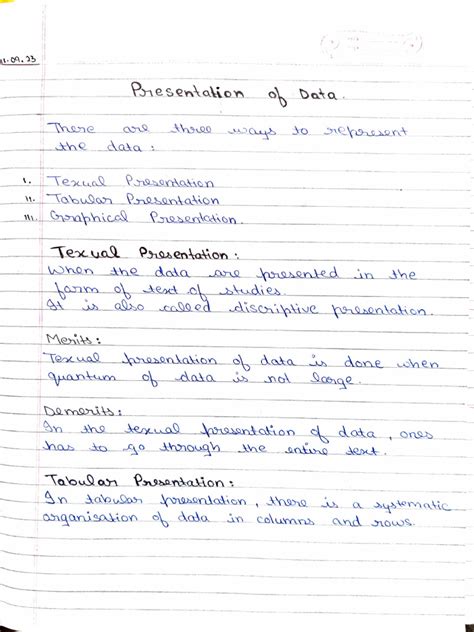 11.09.23
Presentation of Data.
There are three ways to represent
the data:
I. Texual Presentation
II. Tabular Presentation
III. Graphical Presentation.
Texual Presentation:
When the data are presented in the
form of text of studies.
It is also called discriptive presentation.
Merits:
Texual presentation of data is done when
quantum of data is not large.
Demerits:
In the texual presentation of data, ones
has to go through the entire text.
Tabular Presentation:
In tabular presentation, there is a systematic
organisation of data in columns and rows.